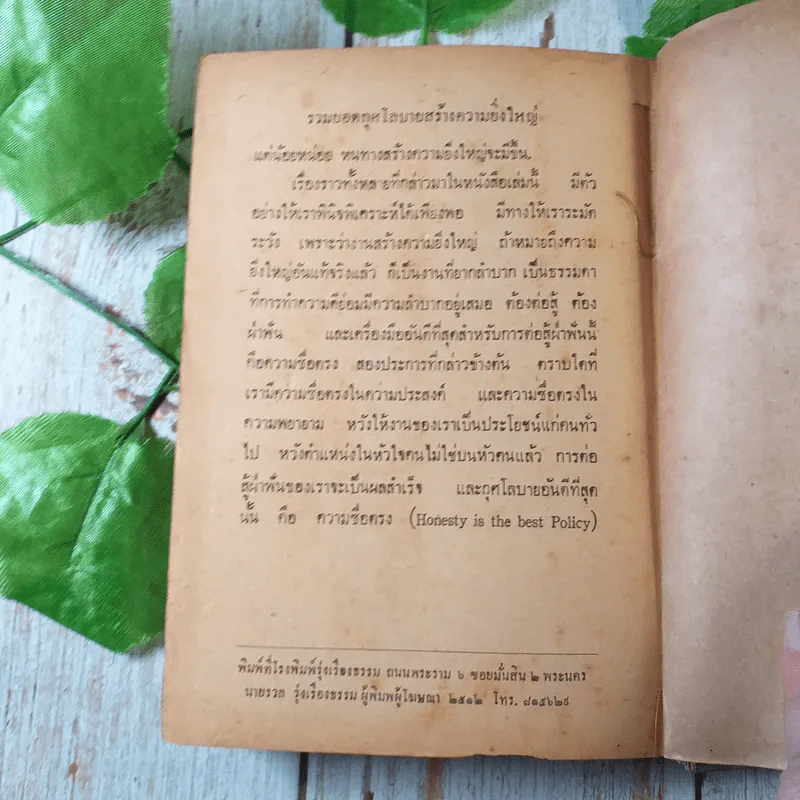 รวมยอดกุศโลบายสร้างความยิ่งใหญ่
แต่น้อยหน่อย หนทางสร้างความยิ่งใหญ่จะมีขึ้น.
เรื่องราวทั้งหลายที่กล่าวมาในหนังสือเล่มนี้ มีตัว
อย่างให้เราพินิจพิเคราะห์ได้เพียงพอ มีทางให้เราระมัด
ระวัง เพราะว่างานสร้างความยิ่งใหญ่ ถ้าหมายถึงความ
ยิ่งใหญ่อันแท้จริงแล้ว ก็เป็นงานที่ยากลำบาก เป็นธรรมดา
ที่การทำความดีย่อมมีความลำบากอยู่เสมอ ต้องต่อสู้ ต้อง
ฝ่าฟัน และเครื่องมืออันดีที่สุดสำหรับการต่อสู้ฝ่าฟันนี้
คือความซื่อตรง สองประการที่กล่าวข้างต้น ตราบใดที่
เรามีความซื่อตรงในความประสงค์ และความซื่อตรงใน
ความพยายาม หวังให้งานของเราเป็นประโยชน์แก่คนทั่ว
ไป หวังตำแหน่งในหัวใจคนไม่ใช่บนหัวคนแล้ว การต่อ
สู้ฝ่าฟันของเราจะเป็นผลสำเร็จ และกุศโลบายอันดีที่สุด
นั้น คือ ความซื่อตรง (Honesty is the best Policy)
พิมพ์ที่โรงพิมพ์รุ่งเรืองธรรม ถนนพระราม ๖ ซอยมั่นสิน ๒ พระนคร
นายรวล รุ่งเรืองธรรม ผู้พิมพ์ผู้โฆษณา ๒๕๑๒ โทร. ๘๑๕๖๒๙